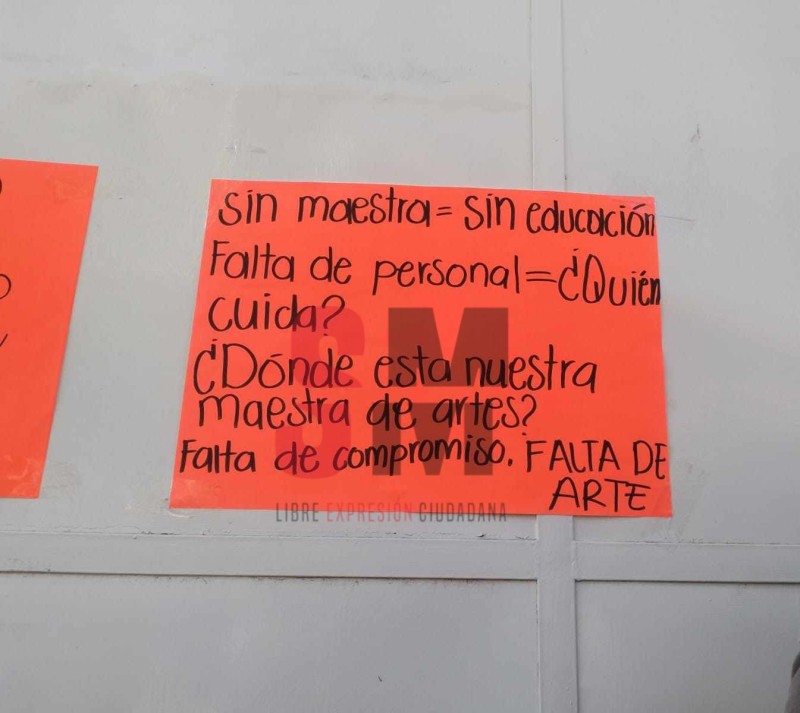 sin maestra= sin educación
Falta de personal=¿Quién
cuida?
¿Dónde esta nuestra
maestra de artes?
Falta de compromiso. FALTA DE
ARTE
SM
MT
LIBRE EXPRESIÓN CIUDADANA